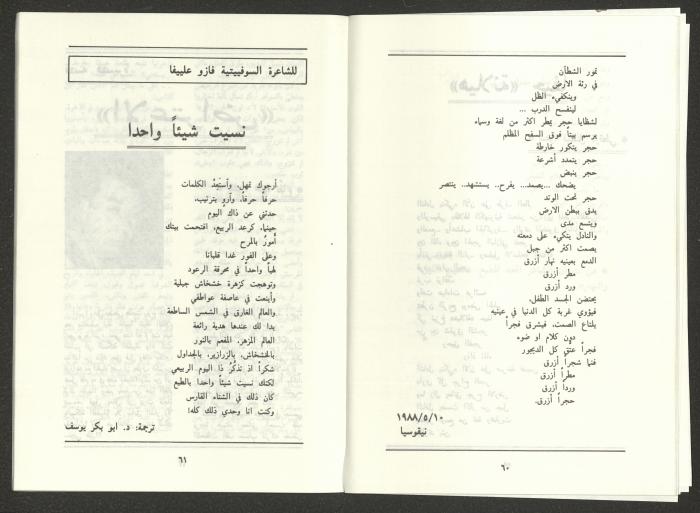 تمور الشطآن
في رئة الارض
وينكفيء الظل
لينفسح الدرب ...
لشظايا حجر يمطر اكثر من لغة وسماء
يرسم بيتاً فوق السفح المظلم
حجر يتكور خارطة
حجر يتمدد أشرعة
حجر ينبض
يضحك ...يصمد... يفرح.. يستشهد.. ينتصر
حجر تحت الوتد
يدق ببطن الارض
ويتسع مدى
والنادل يتكيء على دمعته
يصمت اكثر من جبل
الدمع بعينيه نهار أزرق
مطر أزرق
ورد أزرق
يحتضن الجسد الطفل،
فيؤوي غربة كل الدنيا في عينيه
يلتاع الصمت، فيشرق فجراً
دون كلام او ضوء
فجراً عتّق كل الديجور
فنما شجراً أزرق
مطراً أزرق
ورداً أزرق
حجراً أزرق.
١٩٨٨/٥/١٠
نيقوسيا
٦٠
للشاعرة السوفييتية فازو علييفا
نسيت شيئاً واحدا
أرجوك تمهل، وأستَعِدُ الكلمات
حرفاً حرفاً، وأروِ بترتيب،
حدثني عن ذاك اليوم
حينما، كرعد الربيع، اقتحمت بيتك
أمورُ بالمرح
وعلى الفور غدا قلبانا
لهباً واحداً في محرقة الرعود
وتوهجت كزهرة خشخاش جبلية
وأينعت في عاصفة عواطفي
والعالم الغارق في الشمس الساطعة
بدا لك عندها هدية رائعة
العالم المزهر، المفعم بالنور
بالخشخاش، بالزرازير، بالجداول
شكراً اذ تذكُرُ ذا اليوم الربيعي
لكنك نسيت شيئاً واحدا بالطبع
كان ذلك في الشتاء القارس
وكنت انا وحدي ذلك كله!
ترجمة: د. ابو بكر يوسف
٦١